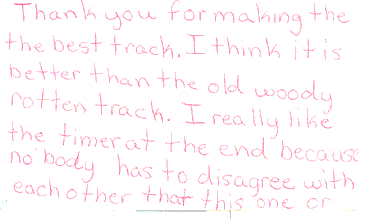 Thank you for making the
the best track. I think it is
better than the old woody
rotten track. I really like
the timer at the end because
no body has to disagree with
each other that this one or